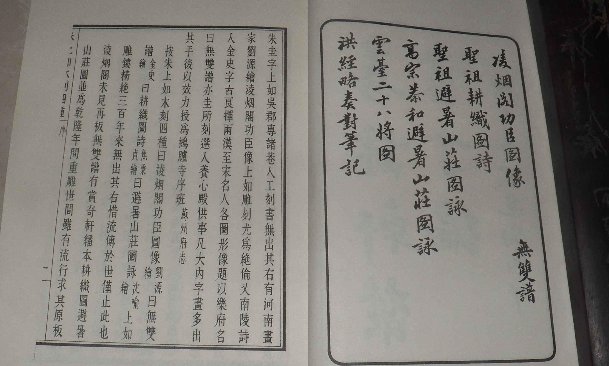 無雙譜
凌烟閣功臣圖像
聖祖耕織圖詩
聖祖避暑山莊圖詠
高宗恭和避暑山莊圖詠
雲臺二十八將圖
洪經略奏對筆記
朱圭字上如吳郡專諸巷人工刻書無出其右有河南畫
家劉源繪凌烟閣功臣像上如雕刻尤爲絶倫又南陵詩
人金史字古良擇兩漢至宋名人各圖形像題以樂府名
曰無雙譜亦圭所刻選入養心殿供事凡大內字畫多出
其手後以效力授爲鴻臚寺序班 蘇州府志
按朱上如木刻四種曰凌烟閣功臣圖像劉源繪曰無雙
譜金史繪曰耕織圖詩焦秉貞繪曰避暑山莊圖詠沈喻繪上如
雕鐫精絶三百年來無出其右惜流傳於世僅止此也
凌烟閣未見再板無雙譜有賞奇軒縮本耕織圖避暑
山莊圖並爲乾隆年間重雕世間雖有流行求其原板
朱上如木刻四種 序 一